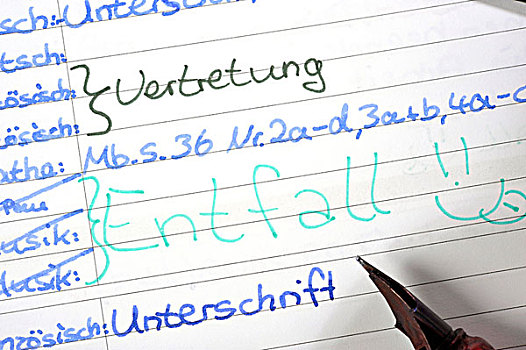 sch: Unterschrift
tsch:
zösisch: } Vertretung
zösisch:
athe: Mb.s.36 Nr.2a-d,3a+b,4a-c
Pause
usik: } Entfall !!
Musik:
nzösisch: Unterschrift